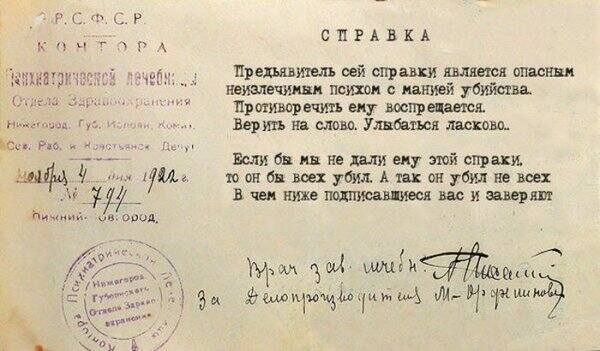 Р.С.Ф.С.Р.
КОНТОРА
Психиатрической лечебницы
Отдела Здравоохранения
Нижегород. Губ. Исполн. Комит.
Сов. Раб. и Крестьянск. Депут.
Ноября 4 дня 1922 г.
№ 794
Нижний-Новгород.
СПРАВКА
Предьявитель сей справки является опасным
неизлечимым психом с манией убийства.
Противоречить ему воспрещается.
Верить на слово. Улыбаться ласково..
Если бы мы не дали ему этой спраки,
то он бы всех убил. А так он убил не всех
В чем ниже подписавшиеся вас и заверяют
Врач зав. лечебн.
За Делопроизводителя М-Орфешинова
Контора Психиатрической Лечебница
Нижегород.
Губернского
Отдела Здраво
охранения